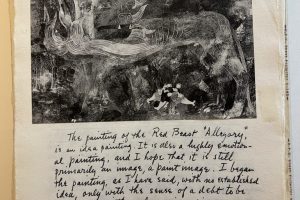 The painting of the Red Beast "Allegory,"
is an idea painting. It is also a highly emotion-
al, painting, and I hope that it is still
primarily an image, a paint image. I began
the painting, as I have said, with no established
idea, only with the sense of a debt to be